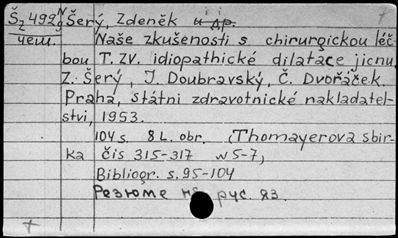 Š2 492 N9 Šerý, Zdeněk и др.
чеш. Naše zkušenosti s chirurgickou léč-
bou T. zv. idiopathické dilatace jicnu
Z. Šerý, J. Doubravský, Č. Dvořáček.
Praha, Státni zdravotnické nakladatel-
stvi, 1953.
104 s. 8 L. obr. (Thomayerova sbir-
ka čis 315-317 w 5-7,
Bibliogr. s. 95-104
Резюме на рус. яз.